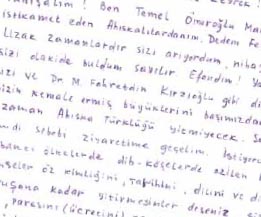 Ben Temel Ömeroğlu
istikamet eden Ahıskalılardanım. Dedem
uzak zamanlardır sizi arıyordum, niha
sizi olakide buldum sayılır. Efendim!
izi ve Dr. M. Fahrettin Kırzıoğlu gibi di
izin kemale ermiş büyüklerini başımızdan
zaman Ahıska Türklüğü yitmiyecek.
mdi sebebi ziyaretime geçelim. İstiyoru
bancı ülkelerde dib-köşelerde ezilen
nseler öz kimliğini, tarihini, dilini ve di
uşona kadar yitirmesinler deseniz
parasını (ücretini)